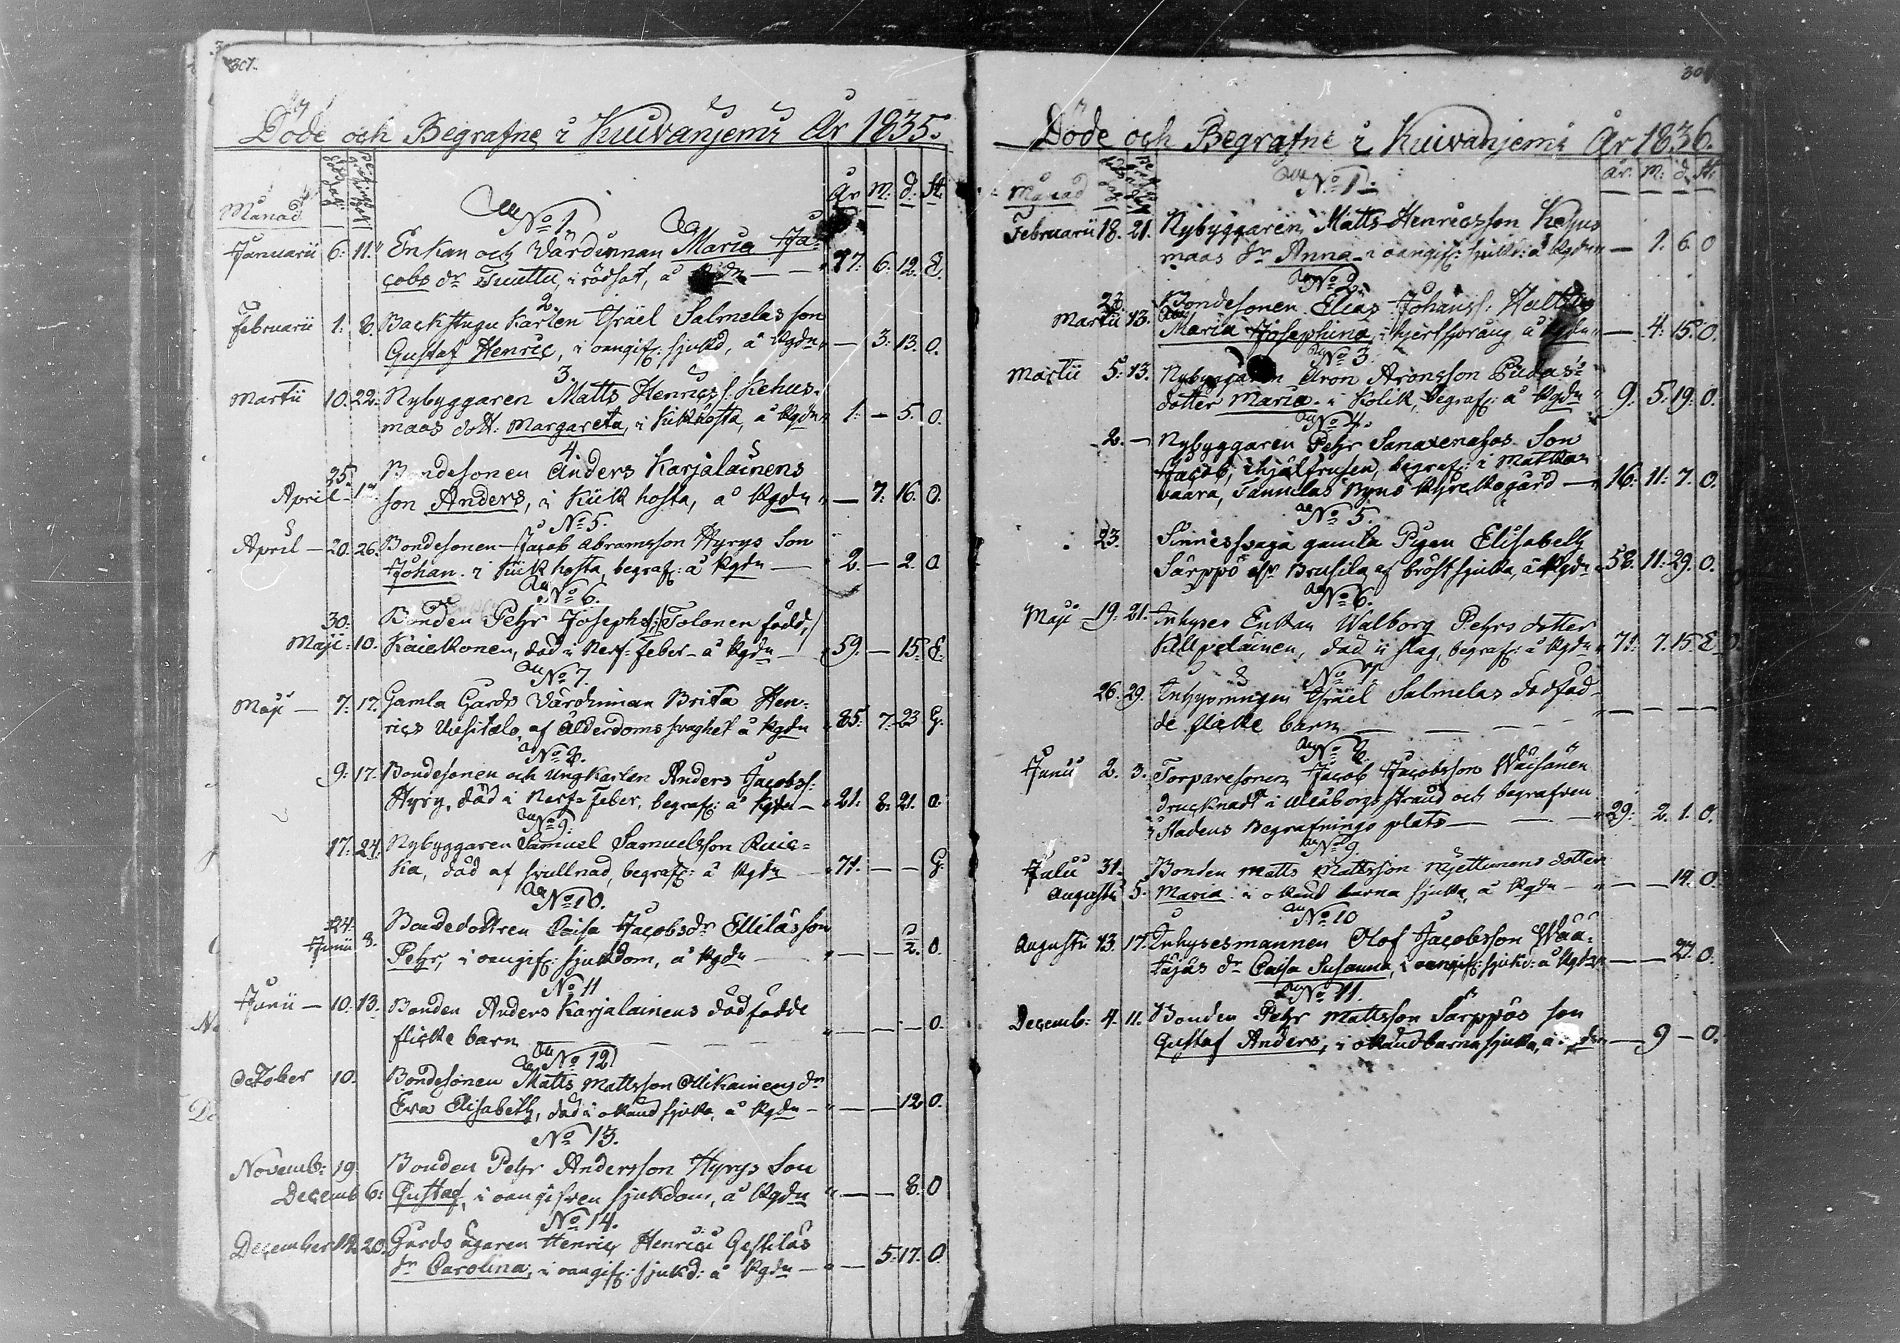 307.
Döde och Begrafne i Kuivanjemi År 1835.
Månad
År m: d: St:
No 1.
Januarii 6. 11. Enkan och Värdinnan Maria Ja-
cobs dr Tuuttu, i rödsot, å 77. 6. 12. E.
2.
Februarii 1. 8. Backstugu Karlen Isräel Salmelas son
Gustaf Henric, i oangif: sjukd, å Kgdn — 3. 13. O.
3.
Martii 10. 22. Nybyggaren Matts Henricss: Kehus-
maas dott: Margareta, i Kikhosta, å Kgdn 1. — 5. O.
4.
25. Bondesonen Anders Karjalainens
April 17. son Anders, i Kikhosta, å Kgdn — 7. 16. O.
No 5.
April — 20. 26. Bondesonen Jacob Abramsson Hyrys Son
Johan i Kikhosta begraf: å Kgdn — 2. — 2. O
No 6.
30. Bonden Pehr Josephs: Tolonen född,
Maji 10. Kaiekonen, död i Nerf: feber å Kgdn — 59. — 15. E.
No 7.
Maji — 7. 17. Gamla Gårds Värdinnan Brita Hen-
rics Uusitalo, af Ålderdoms svaghet å Kgdn 85. 7. 23 G.
No 8.
9. 17. Bondesonen och Ungkarlen Anders Jacobss:
Hyry, död i Nerf-Feber, begraf: å Kgdn — 21. 8. 21. O.
No 9.
17. 24. Nybyggaren Samuel Samuelsson Ruic-
ka, död af svullnad, begraf: å Kgdn 71. — — G.
No 10.
24. Bondedottren Caisa Jacobsdr Ellilas son
Junii 8. Pehr, i oangif: sjukdom, å Kgdn — — O
No 11
Junii — 10. 13. Bonden Anders Karjalainens dödfödde
flicke barn — — — O.
No 12
October 10. Bondesonen Matts Mattsson Ollikainens dr
Eva Elisabeth, död i okänd sjuka, å Kgdn — — — 12 O.
No 13.
Novemb: 19. Bonden Pehr Andersson Hyrys Son
Decemb 6. Gustaf, i oangifven sjukdom, å Kgdn — — 8. O
No 14.
December 12. 20. Gårds ägaren Henric Henrici Gestilas
dr Carolina, i oangif: sjukd: å Kgdn — 5. 17. O.
Döde och Begrafne i Kuivanjemi År 1836.
Månad
År. m: d. St:
No 1.
Februarii 18. 21. Nybyggaren, Matts Henricsson Kehus
maas dr Anna i oangif: sjukd: å Kgdn — 1. 6. O
No 2.
Bondesonen Elias Johanss:
Martii 13. Maria Josephina, i hjertsprång, å Kgdn — 4. 15. O.
No 3
Martii 5. 13. Nybyggaren Aron Aronsson Pudas's
dotter Maria i Kolik, begraf: å Kgdn 9. 5. 19. O.
No 4.
2. — Nybyggaren Pehr Sanaxenahos Son
Jacob, ihjälfrusen, begraf: i
vaara, Tannilas Byns Kyrckogård — 16. 11. 7. O.
No 5.
23. Sinnessvaga gamla Pigan Elisabeth
Särppö af bröstsjuka, å Kgdn 58. 11. 29. O.
No 6.
Maji 19. 21. Inhyses Enkan Walborg Pehrs dotter
Kilpeläinen, död i slag, begraf: å Kgdn 71. 7. 15. E
No 7
26. 29. Isräel Salmelas dödföd-
de flicke barn — — — —
No 8.
Junii 2. 3. Torparesonen Jacob Jacobsson Wäisänen
drucknad i Uleåborgs strand och begrafven
i Stadens Begrafnings plats — — 29. 2. 1. O.
No 9
Julii 31. Bonden Matts Mattsson Mjettunens dotter
Augusti 5. Maria i okänd barna sjuka, å Kgdn — — — 19. O.
No 10
Augusti 13. 17. Inhysesmannen Olof Jacobsson Wää-
täjäs dr Caisa Susanna, i oangif: sjukd: å Kgdn — — 27. O.
No 11.
Decemb: 4. 11. Bonden Pehr Mattsson Särppös son
Gustaf Anders, i okänd barnasjuka, å — 9 — O.